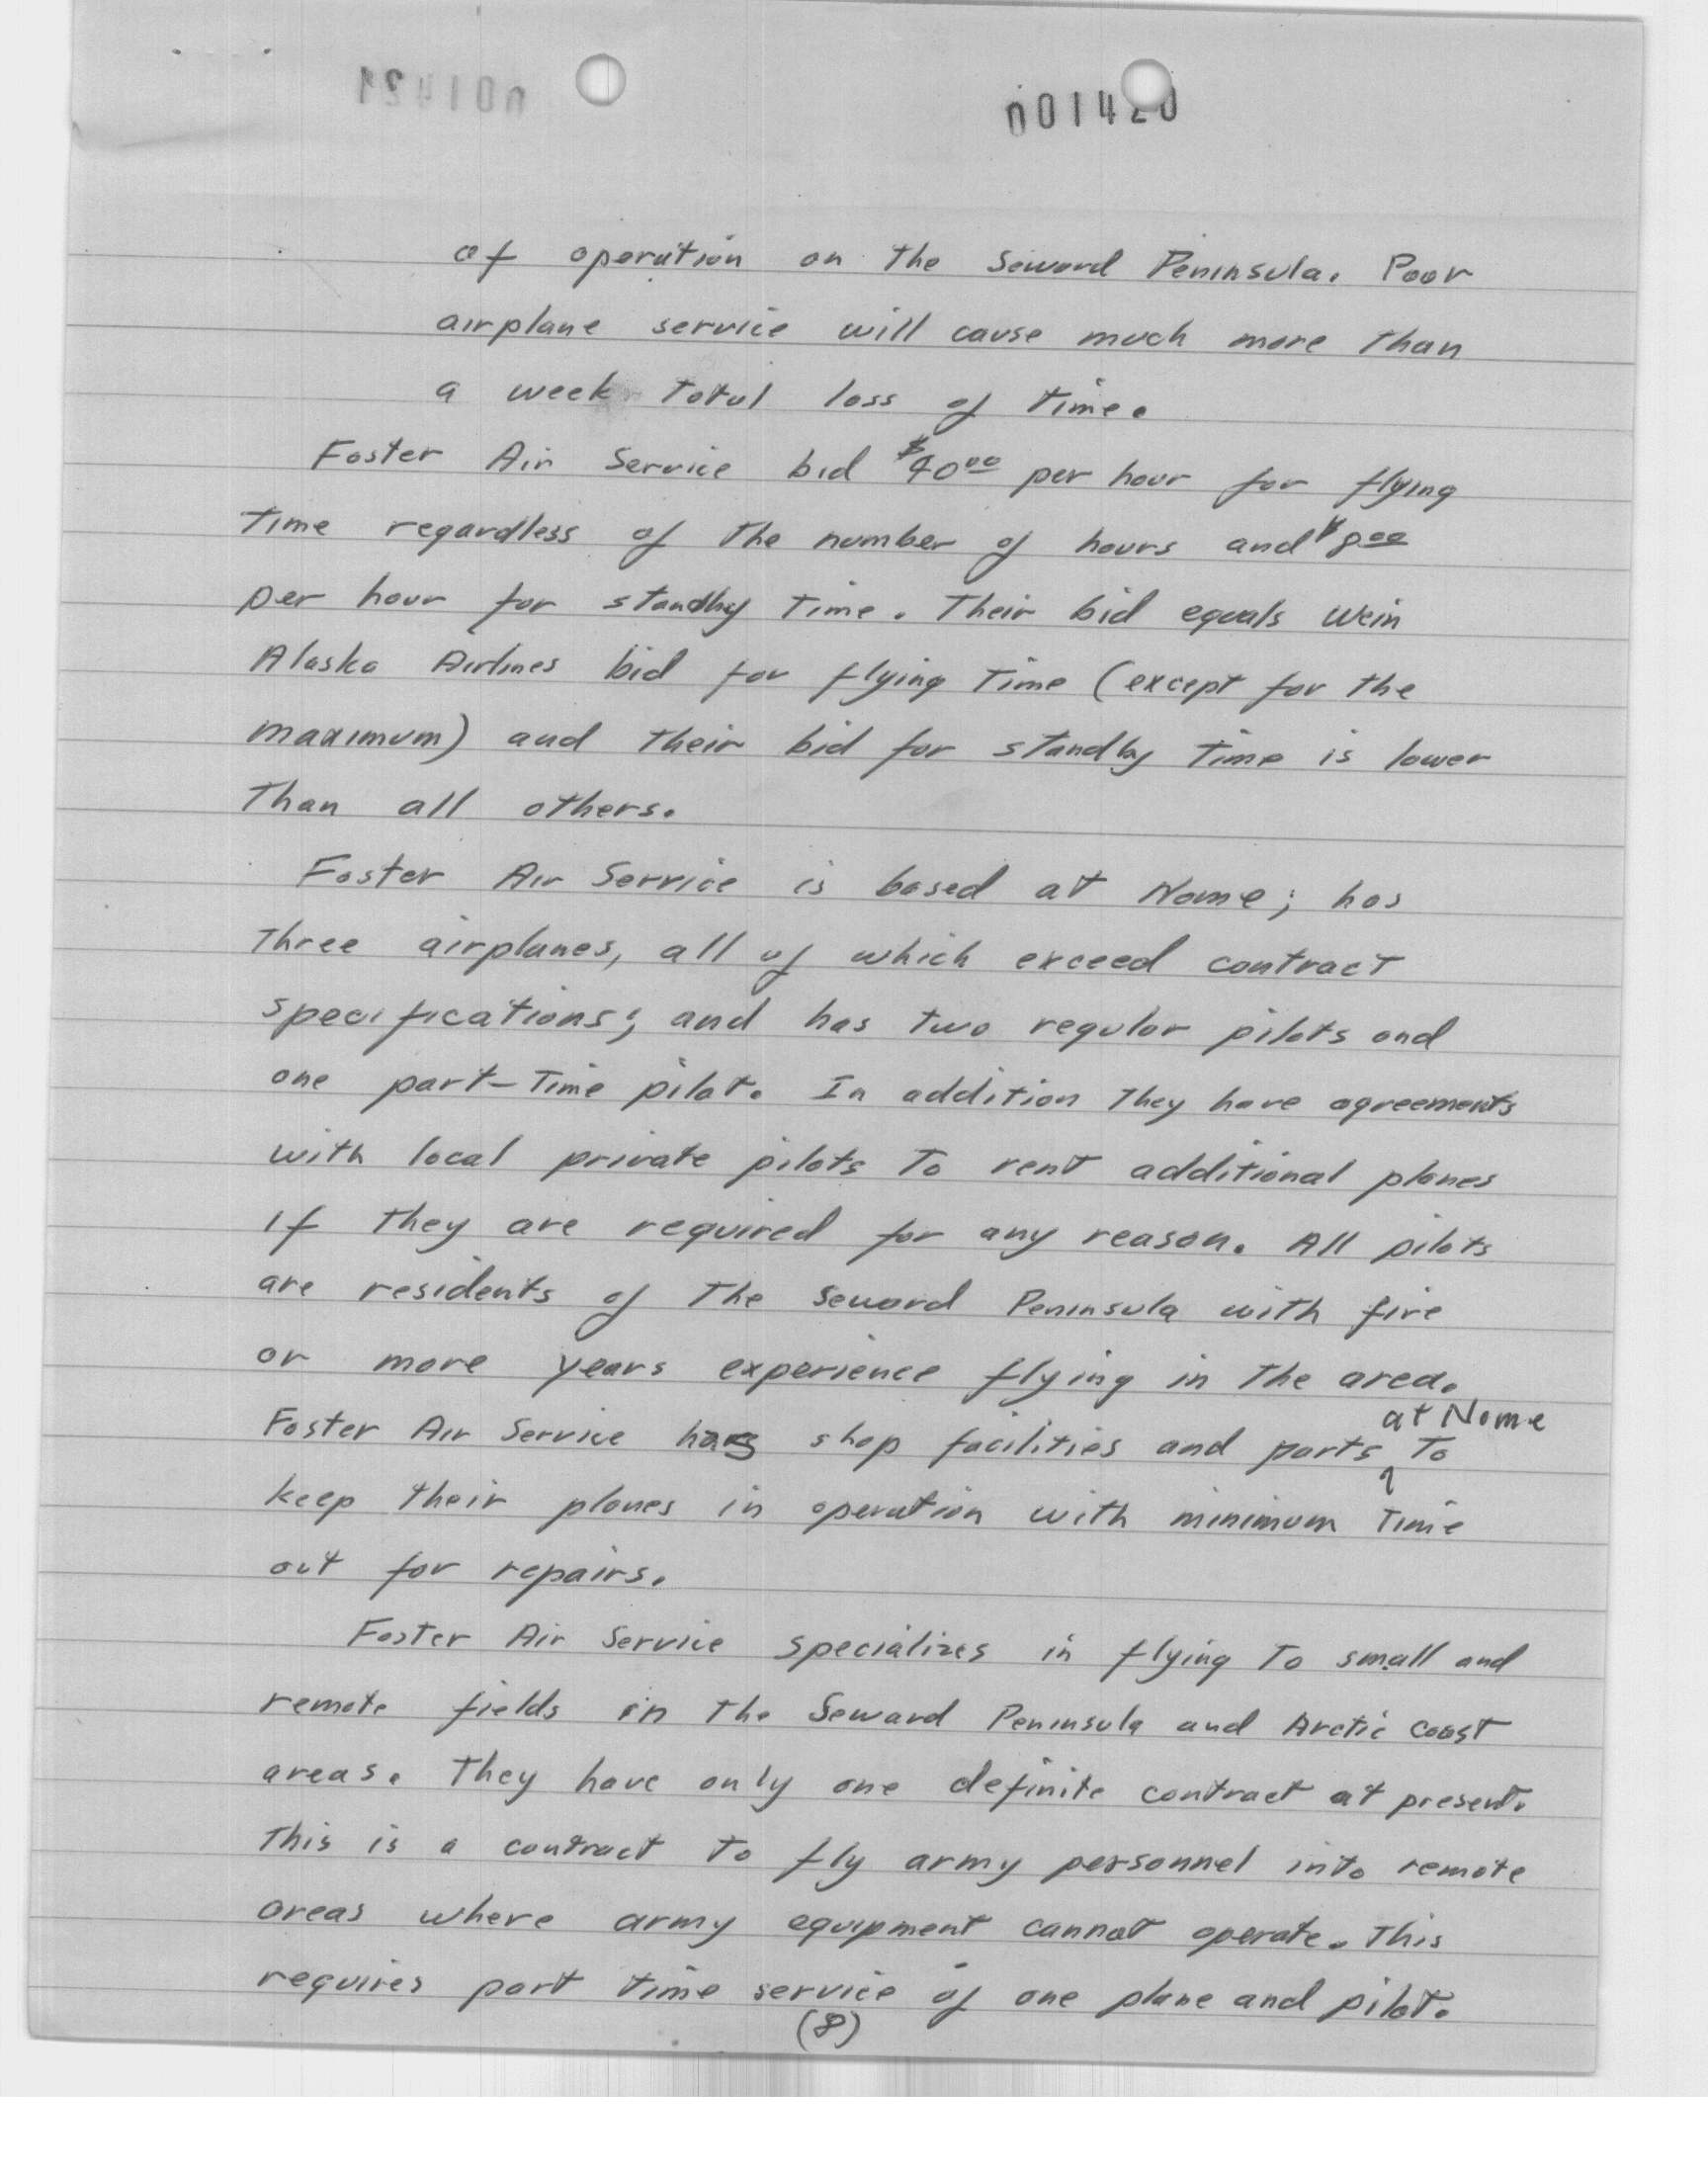 001421
001420
of operation on the Seward Peninsula. Poor
airplane service will cause much more than
a week total loss of time.
Foster Air Service bid $40.00 per hour for flying
time regardless of the number of hours and $8.00
per hour for standby time. Their bid equals Wein
Alaska Airlines bid for flying time (except for the
maximum) and their bid for standby time is lower
than all others.
Foster Air Service is based at Nome; has
three airplanes, all of which exceed contract
specifications; and has two regular pilots and
one part-time pilot. In addition they have agreements
with local private pilots to rent additional planes
if they are required for any reason. All pilots
are residents of the Seward Peninsula with five
or more years experience flying in the area.
at Nome
Foster Air Service has shop facilities and parts to
keep their planes in operation with minimum time
out for repairs.
Foster Air Service specializes in flying to small and
remote fields in the Seward Peninsula and Arctic Coast
areas. They have only one definite contract at present.
This is a contract to fly army personnel into remote
areas where army equipment cannot operate. This
requires part time service of one plane and pilot.
(8)